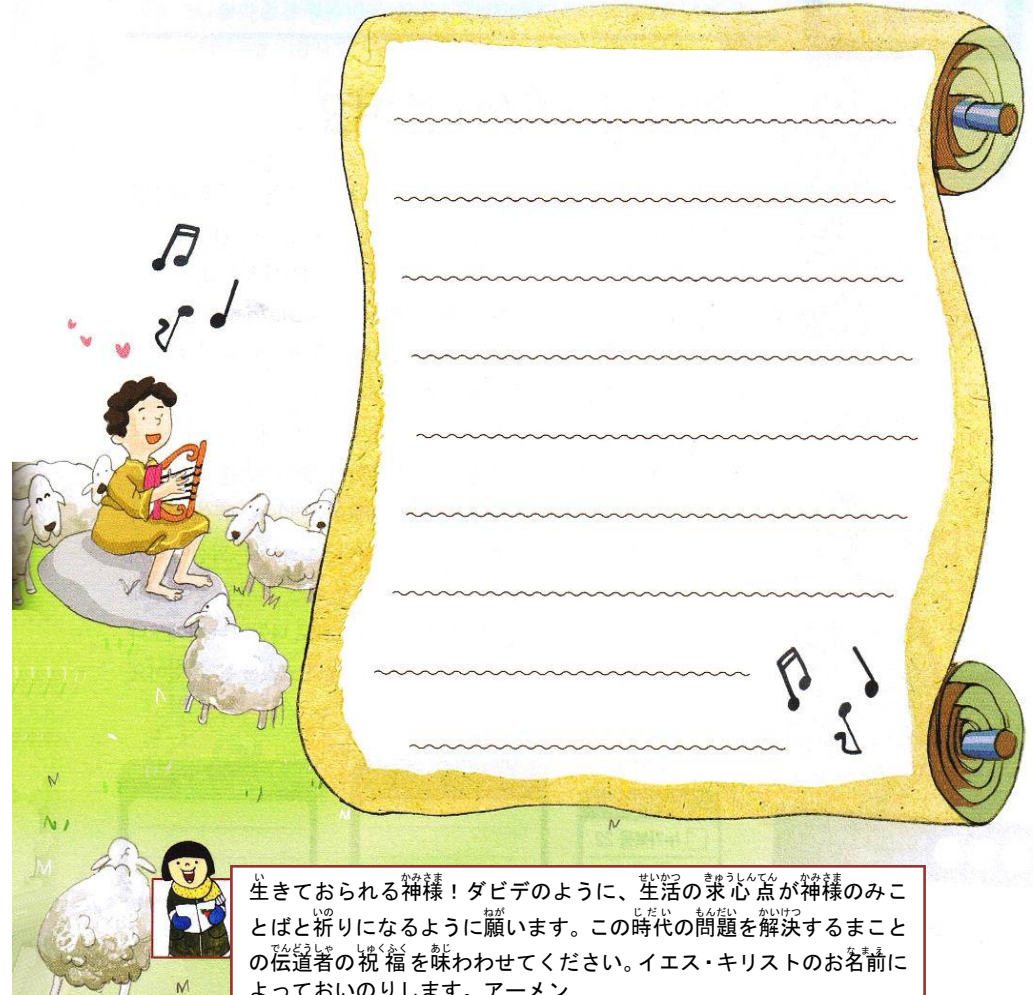 生きておられる神様！ダビデのように、生活の求心点が神様のみこ
とばと祈りになるように願います。この時代の問題を解決するまこと
の伝道者の祝福を味わわせてください。イエス・キリストのお名前に
よっておいのりします。アーメン